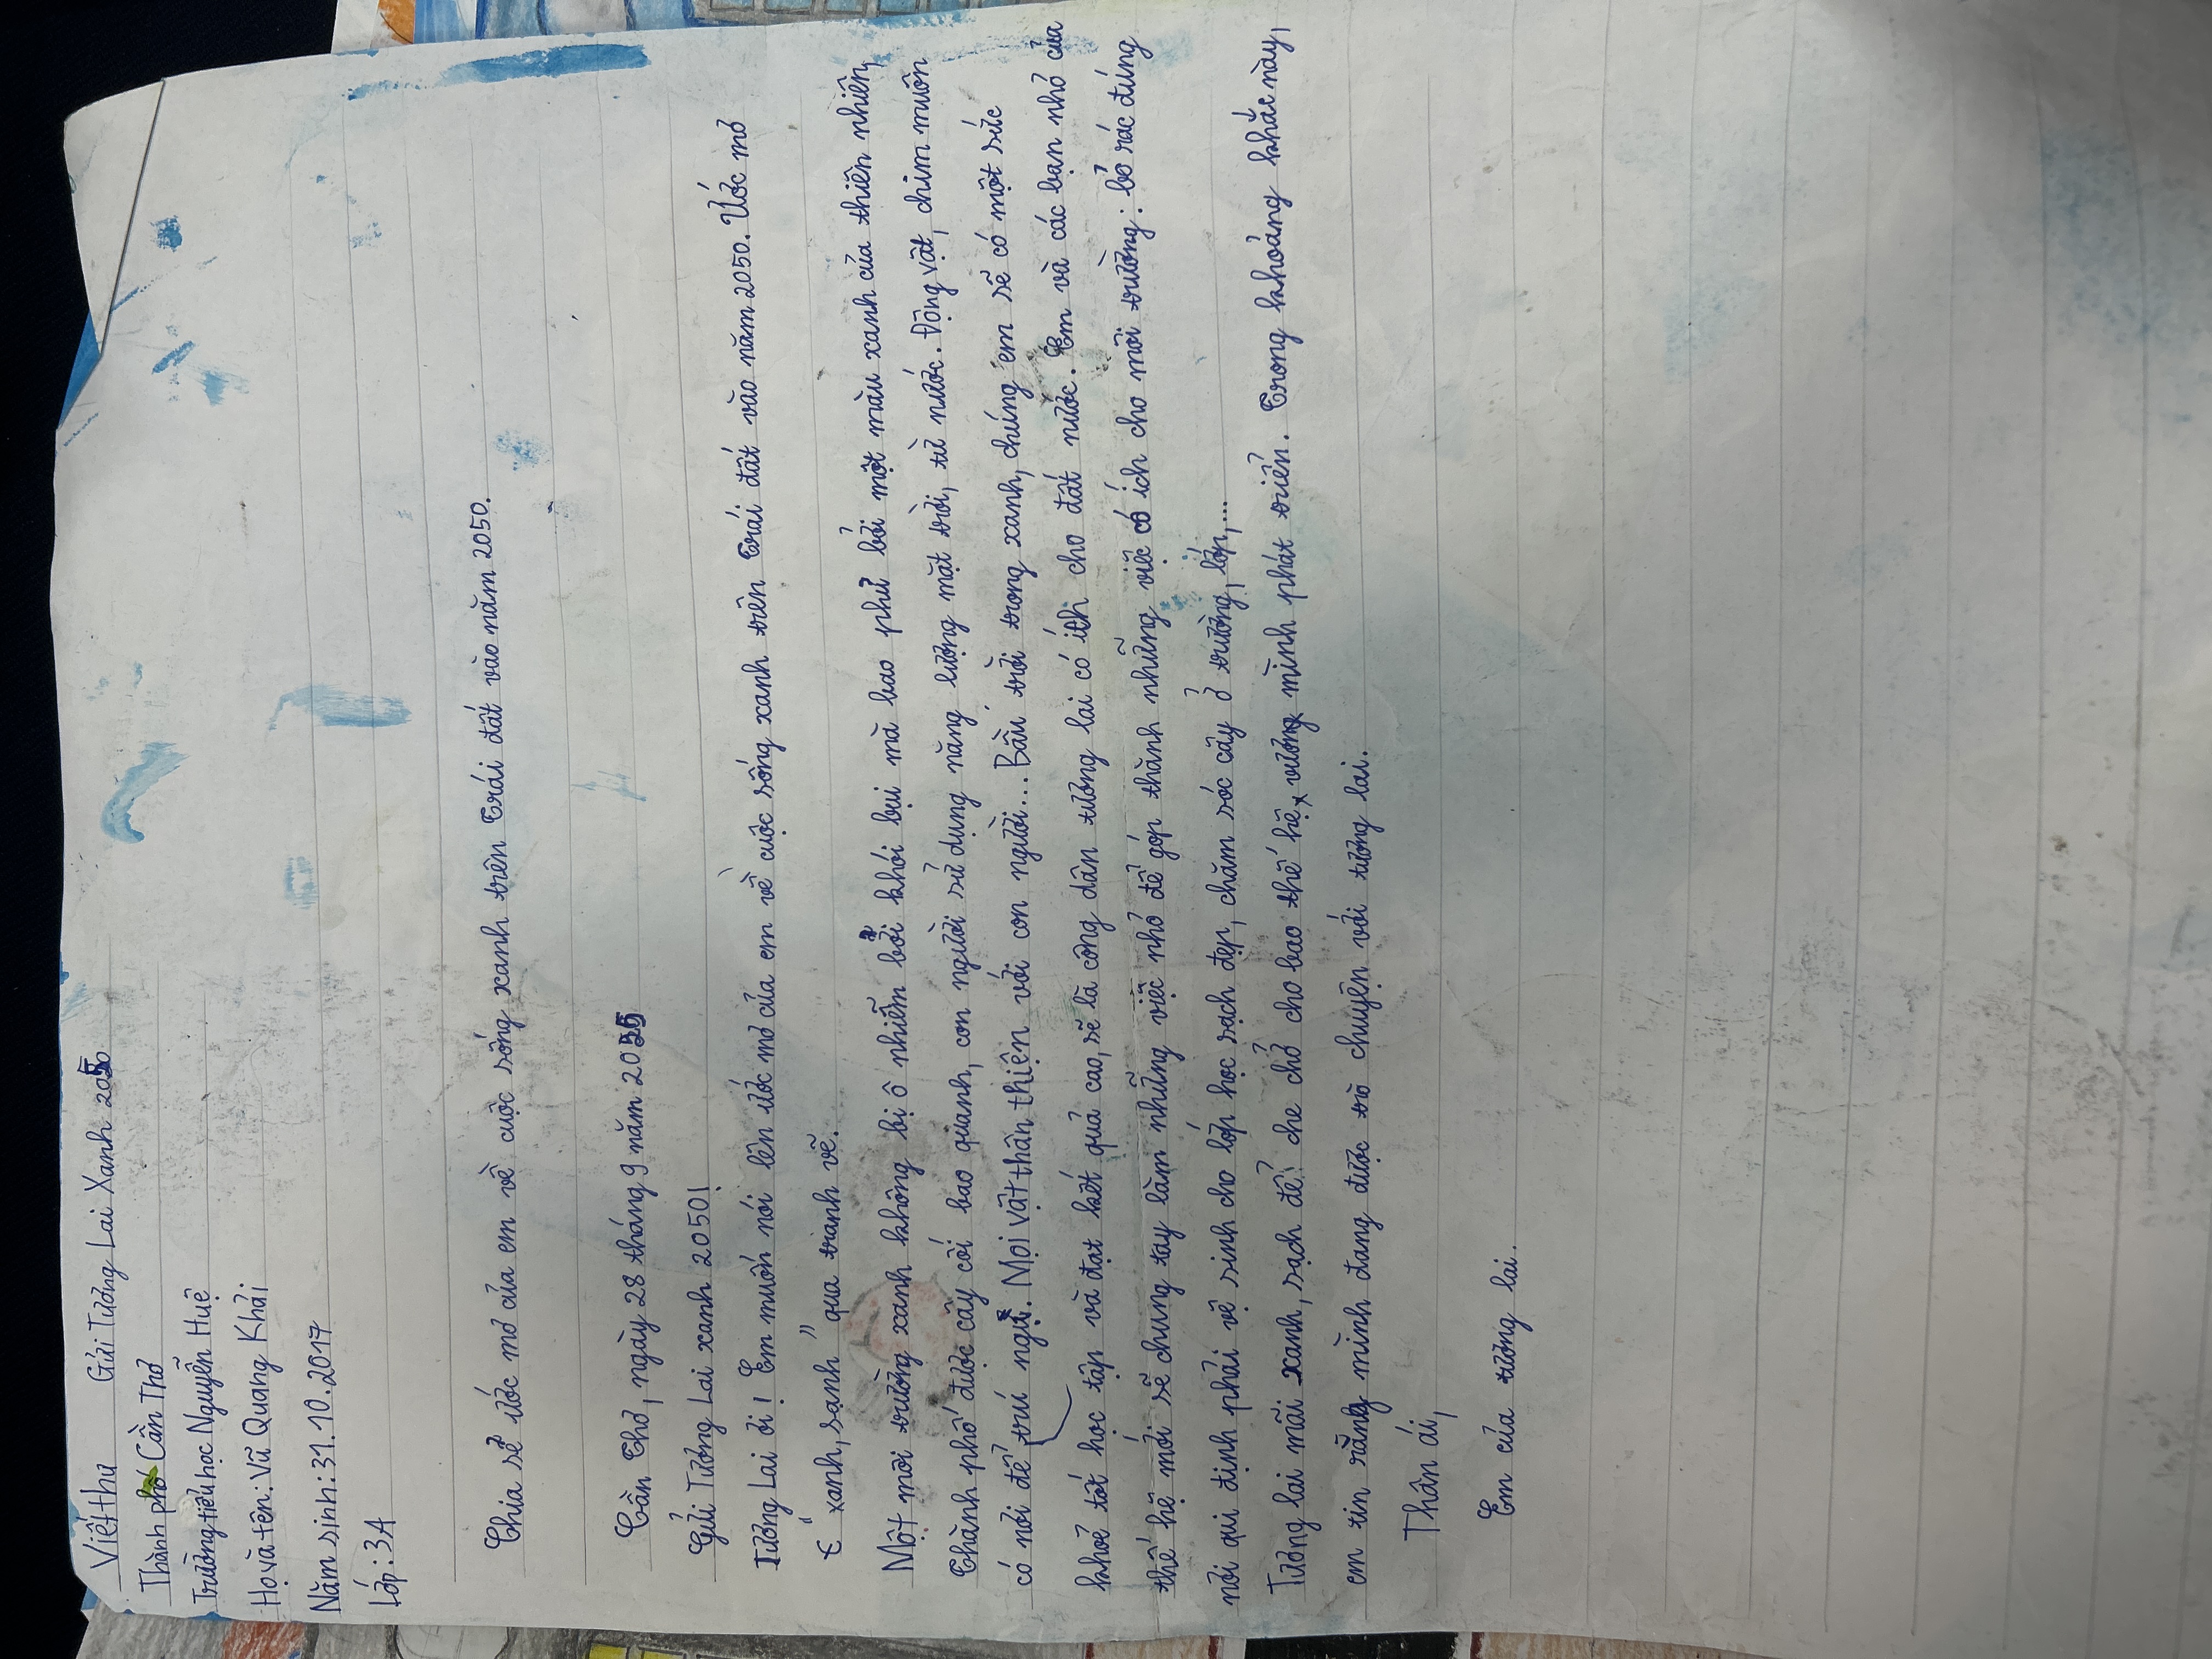 Viết thư Gửi Tương Lai Xanh 2050
Thành phố Cần Thơ
Trường tiểu học Nguyễn Huệ
Họ và tên: Vũ Quang Khải
Năm sinh: 31.10.2017
Lớp: 3A
Chia sẻ ước mơ của em về cuộc sống xanh trên Trái đất vào năm 2050.
Cần Thơ, ngày 28 tháng 9 năm 2025
Gửi Tương Lai xanh 2050!
Tương Lai ơi! Em muốn nói lên ước mơ của em về cuộc sống xanh trên Trái đất vào năm 2050. Ước mơ
" xanh, sạnh " qua tranh vẽ.
Một môi trường xanh không bị ô nhiễm bởi khói bụi mà bao phủ bởi một màu xanh của thiên nhiên,
Thành phố được cây cối bao quanh, con người sử dụng năng lượng mặt trời, từ nước. Động vật, chim muôn
có nơi để trú ngụ. Mọi vật thân thiện với con người... Bầu trời trong xanh, chúng em sẽ có một sức
khoẻ tốt học tập và đạt kết quả cao, sẽ là công dân tương lai có ích cho đất nước. Em và các bạn nhỏ của
thế hệ mới sẽ chung tay làm những việc nhỏ để góp thành những việc có ích cho môi trường: bỏ rác đúng
nơi qui định phải vệ sinh cho lớp học sạch đẹp, chăm sóc cây ở trường, lớp,...
Tương lai mãi xanh, sạch để che chở cho bao thế hệ vương mình phát triển. Trong khoảng khắc này,
em tin rằng mình đang được trò chuyện với tương lai.
Thân ái,
Em của tương lai.